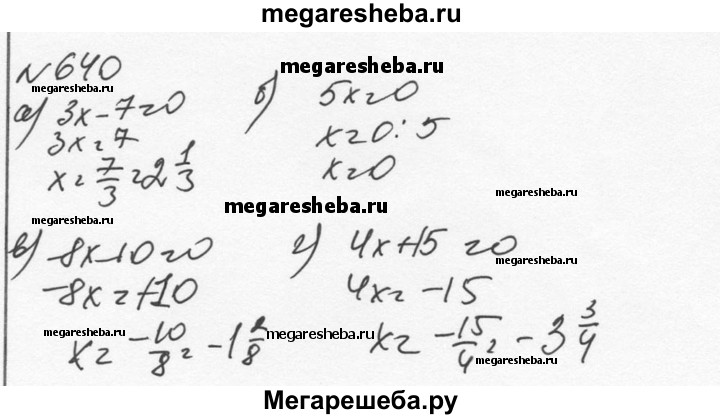 megaresheba.ru
№ 640
megaresheba.ru
megaresheba.ru
а) 3x - 7 = 0
3x = 7
x = 7/3 = 2 1/3
б) 5x = 0
x = 0 : 5
x = 0
megaresheba.ru
megaresheba.ru
megaresheba.ru
в) -8x - 10 = 0
-8x = +10
x = -10/8 = -1 2/8
г) 4x + 15 = 0
4x = -15
x = -15/4 = -3 3/4
megaresheba.ru
megaresheba.ru
megaresheba.ru
megaresheba.ru
Мегарешеба.ру